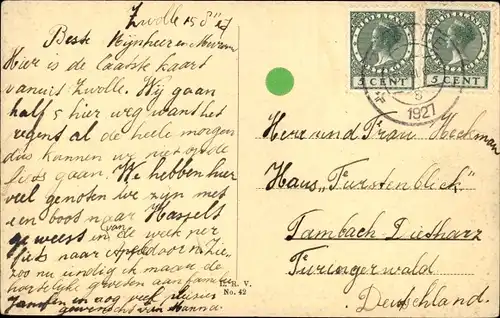 Zwolle 15 8 27
Beste Mijnheer en Mevrouw
Hier is de laatste kaart
vanuit Zwolle. Wij gaan
half 5 hier weg want het
regent al de heele morgen
dus kunnen we niet op de
gaan. We hebben hier
veel genoten we zijn met
een boot naar Hasselt
geweest en van de week per
fiets naar Apeldoorn.
zoo nu eindig ik maar de
hartelijke groeten aan
en nog veel
gewenscht van Hanna
NEDERLAND
NEDERLAND
5 CENT
5 CENT
8
1927
Herr und Frau Hockman
Haus „Furstenblick"
Tambach-Dietharz
Turingerwald
Deutschland.
H. V.
No. 42